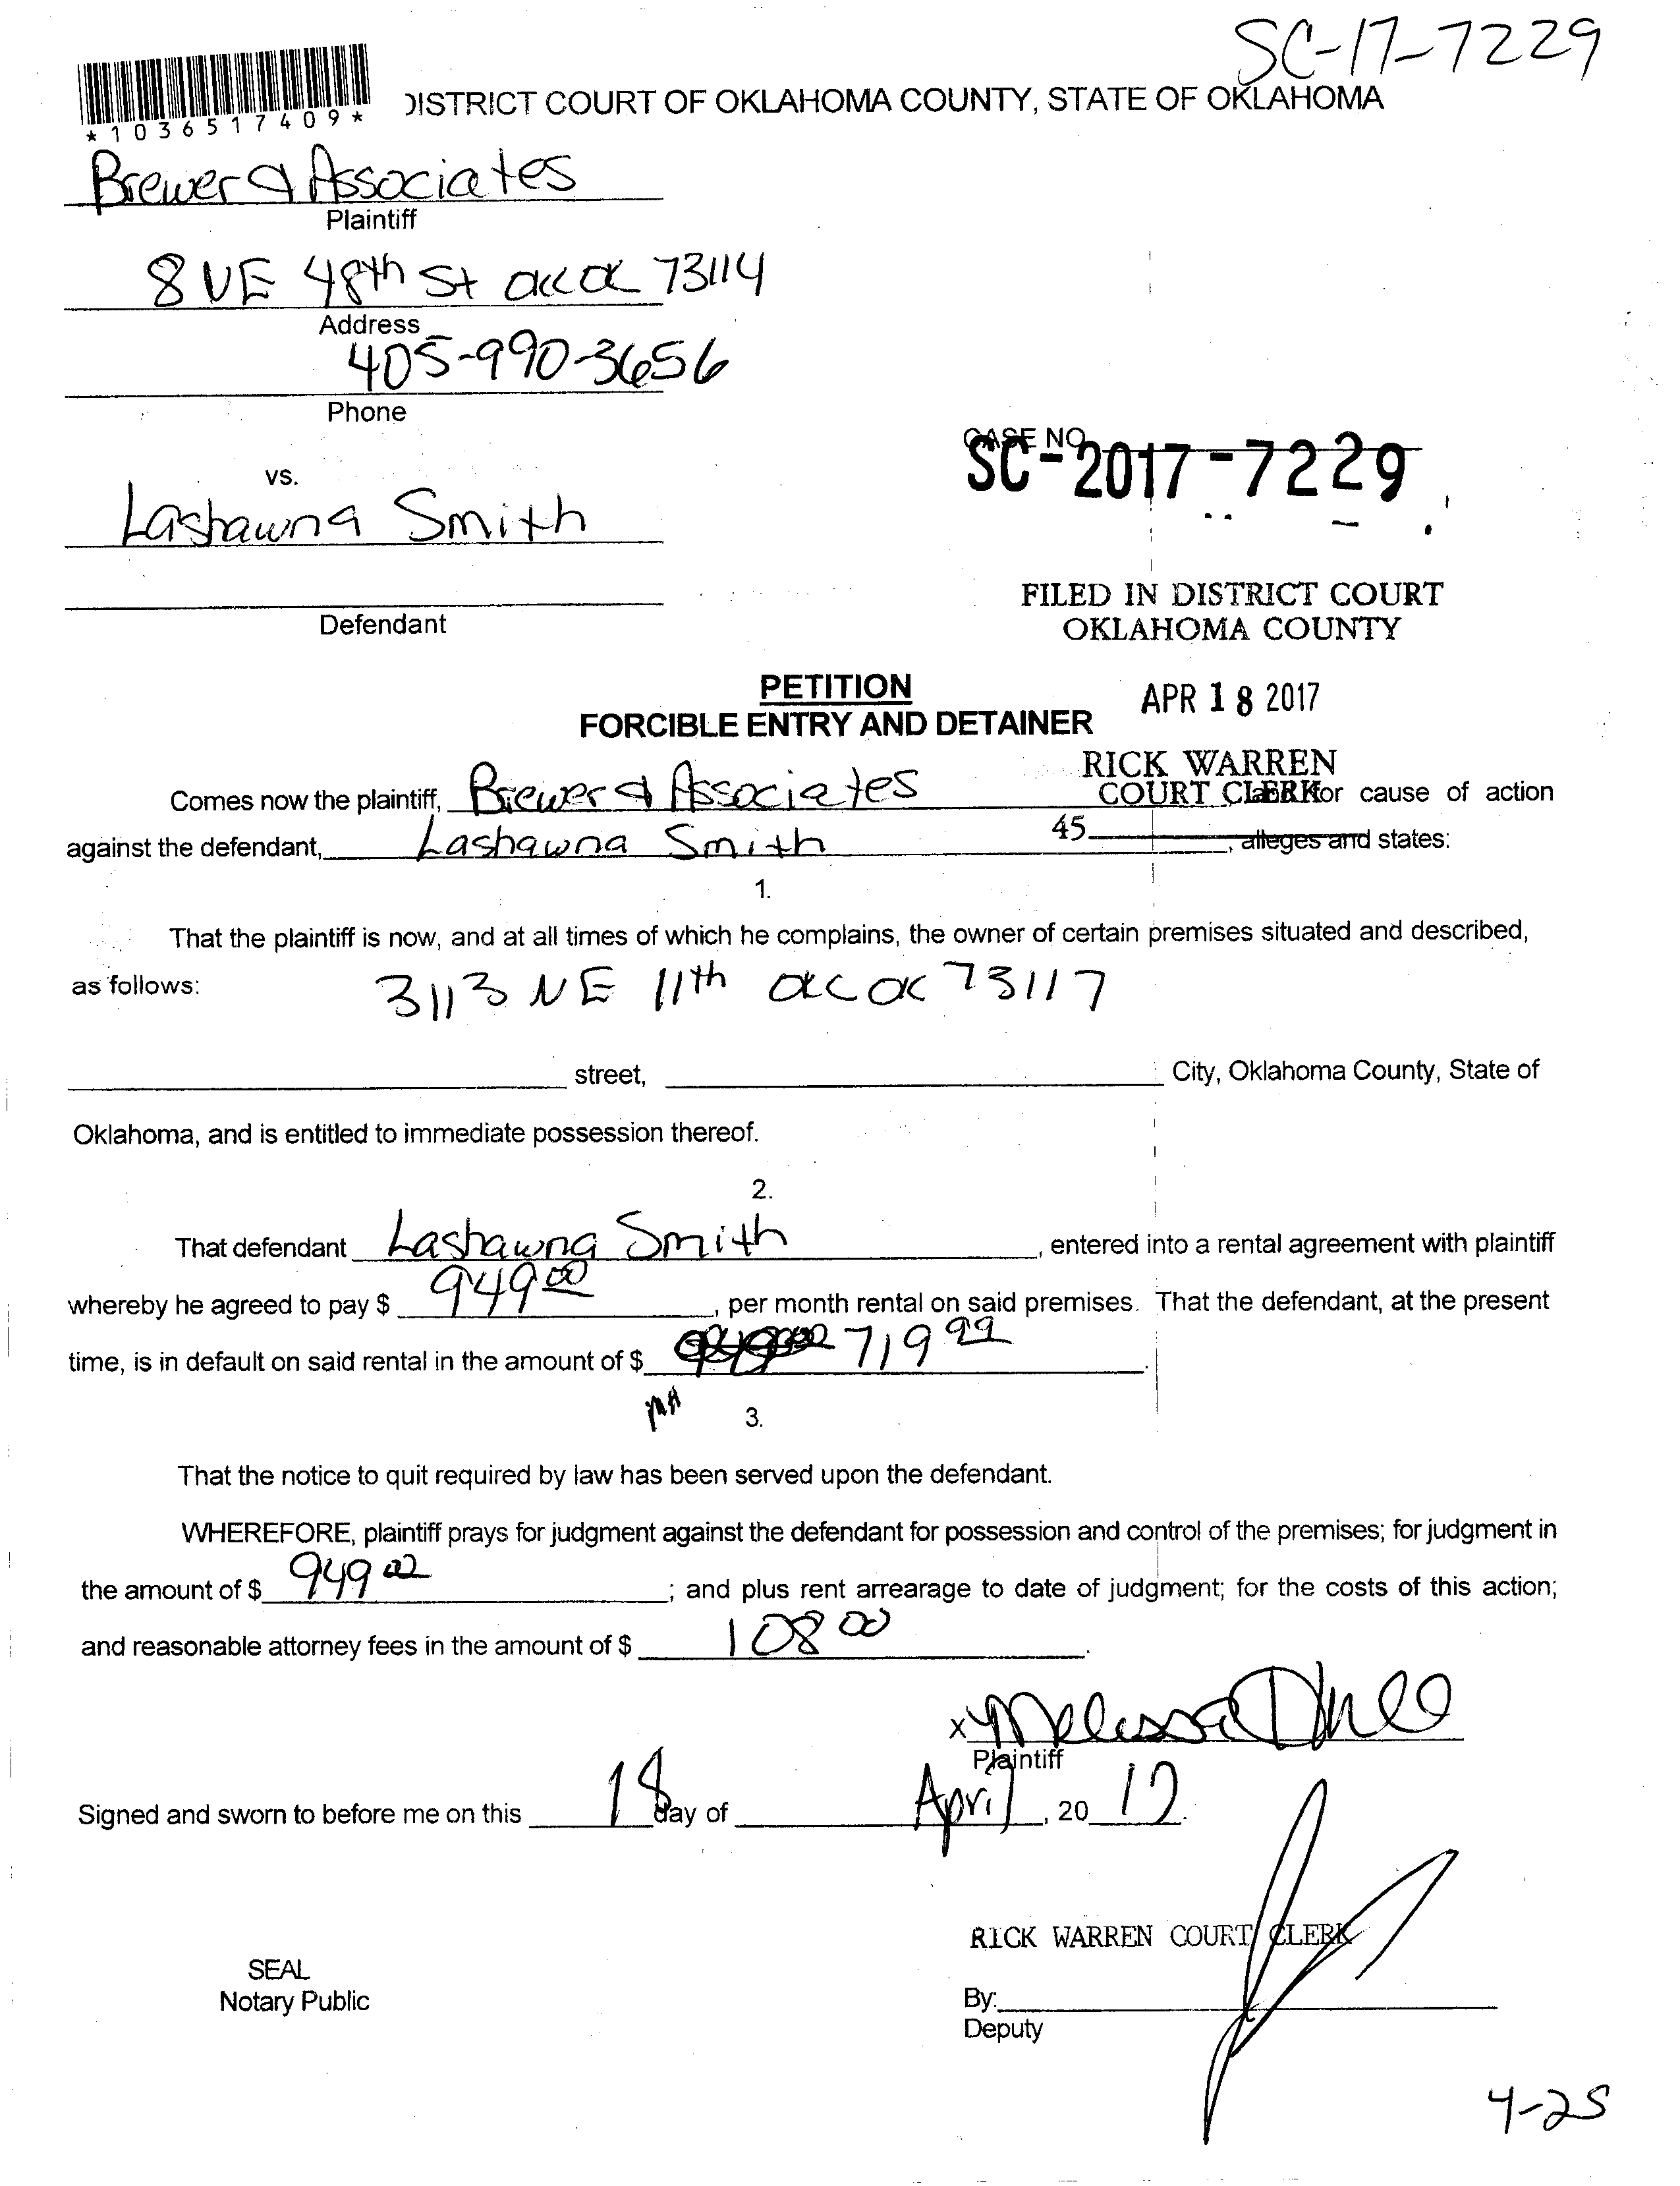 SC-17-7229
*1036517409*
DISTRICT COURT OF OKLAHOMA COUNTY, STATE OF OKLAHOMA
Brewer & Associates
Plaintiff
8 NE 48th St OKC OK 73114
Address
405-990-3656
Phone
CASE NO
SC-2017-7229
vs.
Lashawna Smith
Defendant
FILED IN DISTRICT COURT
OKLAHOMA COUNTY
APR 18 2017
RICK WARREN
COURT CLERK
45
PETITION
FORCIBLE ENTRY AND DETAINER
Comes now the plaintiff, Brewer & Associates for cause of action
against the defendant, Lashawna Smith, alleges and states:
1.
That the plaintiff is now, and at all times of which he complains, the owner of certain premises situated and described,
as follows: 3113 NE 11th OKC OK 73117
street, City, Oklahoma County, State of
Oklahoma, and is entitled to immediate possession thereof.
2.
That defendant Lashawna Smith, entered into a rental agreement with plaintiff
whereby he agreed to pay $ 949 00, per month rental on said premises. That the defendant, at the present
time, is in default on said rental in the amount of $ 719 99.
MH
3.
That the notice to quit required by law has been served upon the defendant.
WHEREFORE, plaintiff prays for judgment against the defendant for possession and control of the premises; for judgment in
the amount of $ 949 00; and plus rent arrearage to date of judgment; for the costs of this action;
and reasonable attorney fees in the amount of $ 108 00.
x Melissa Hull
Plaintiff
Signed and sworn to before me on this 18 day of April, 20 17.
RICK WARREN COURT CLERK
SEAL
Notary Public
By:
Deputy
4-25